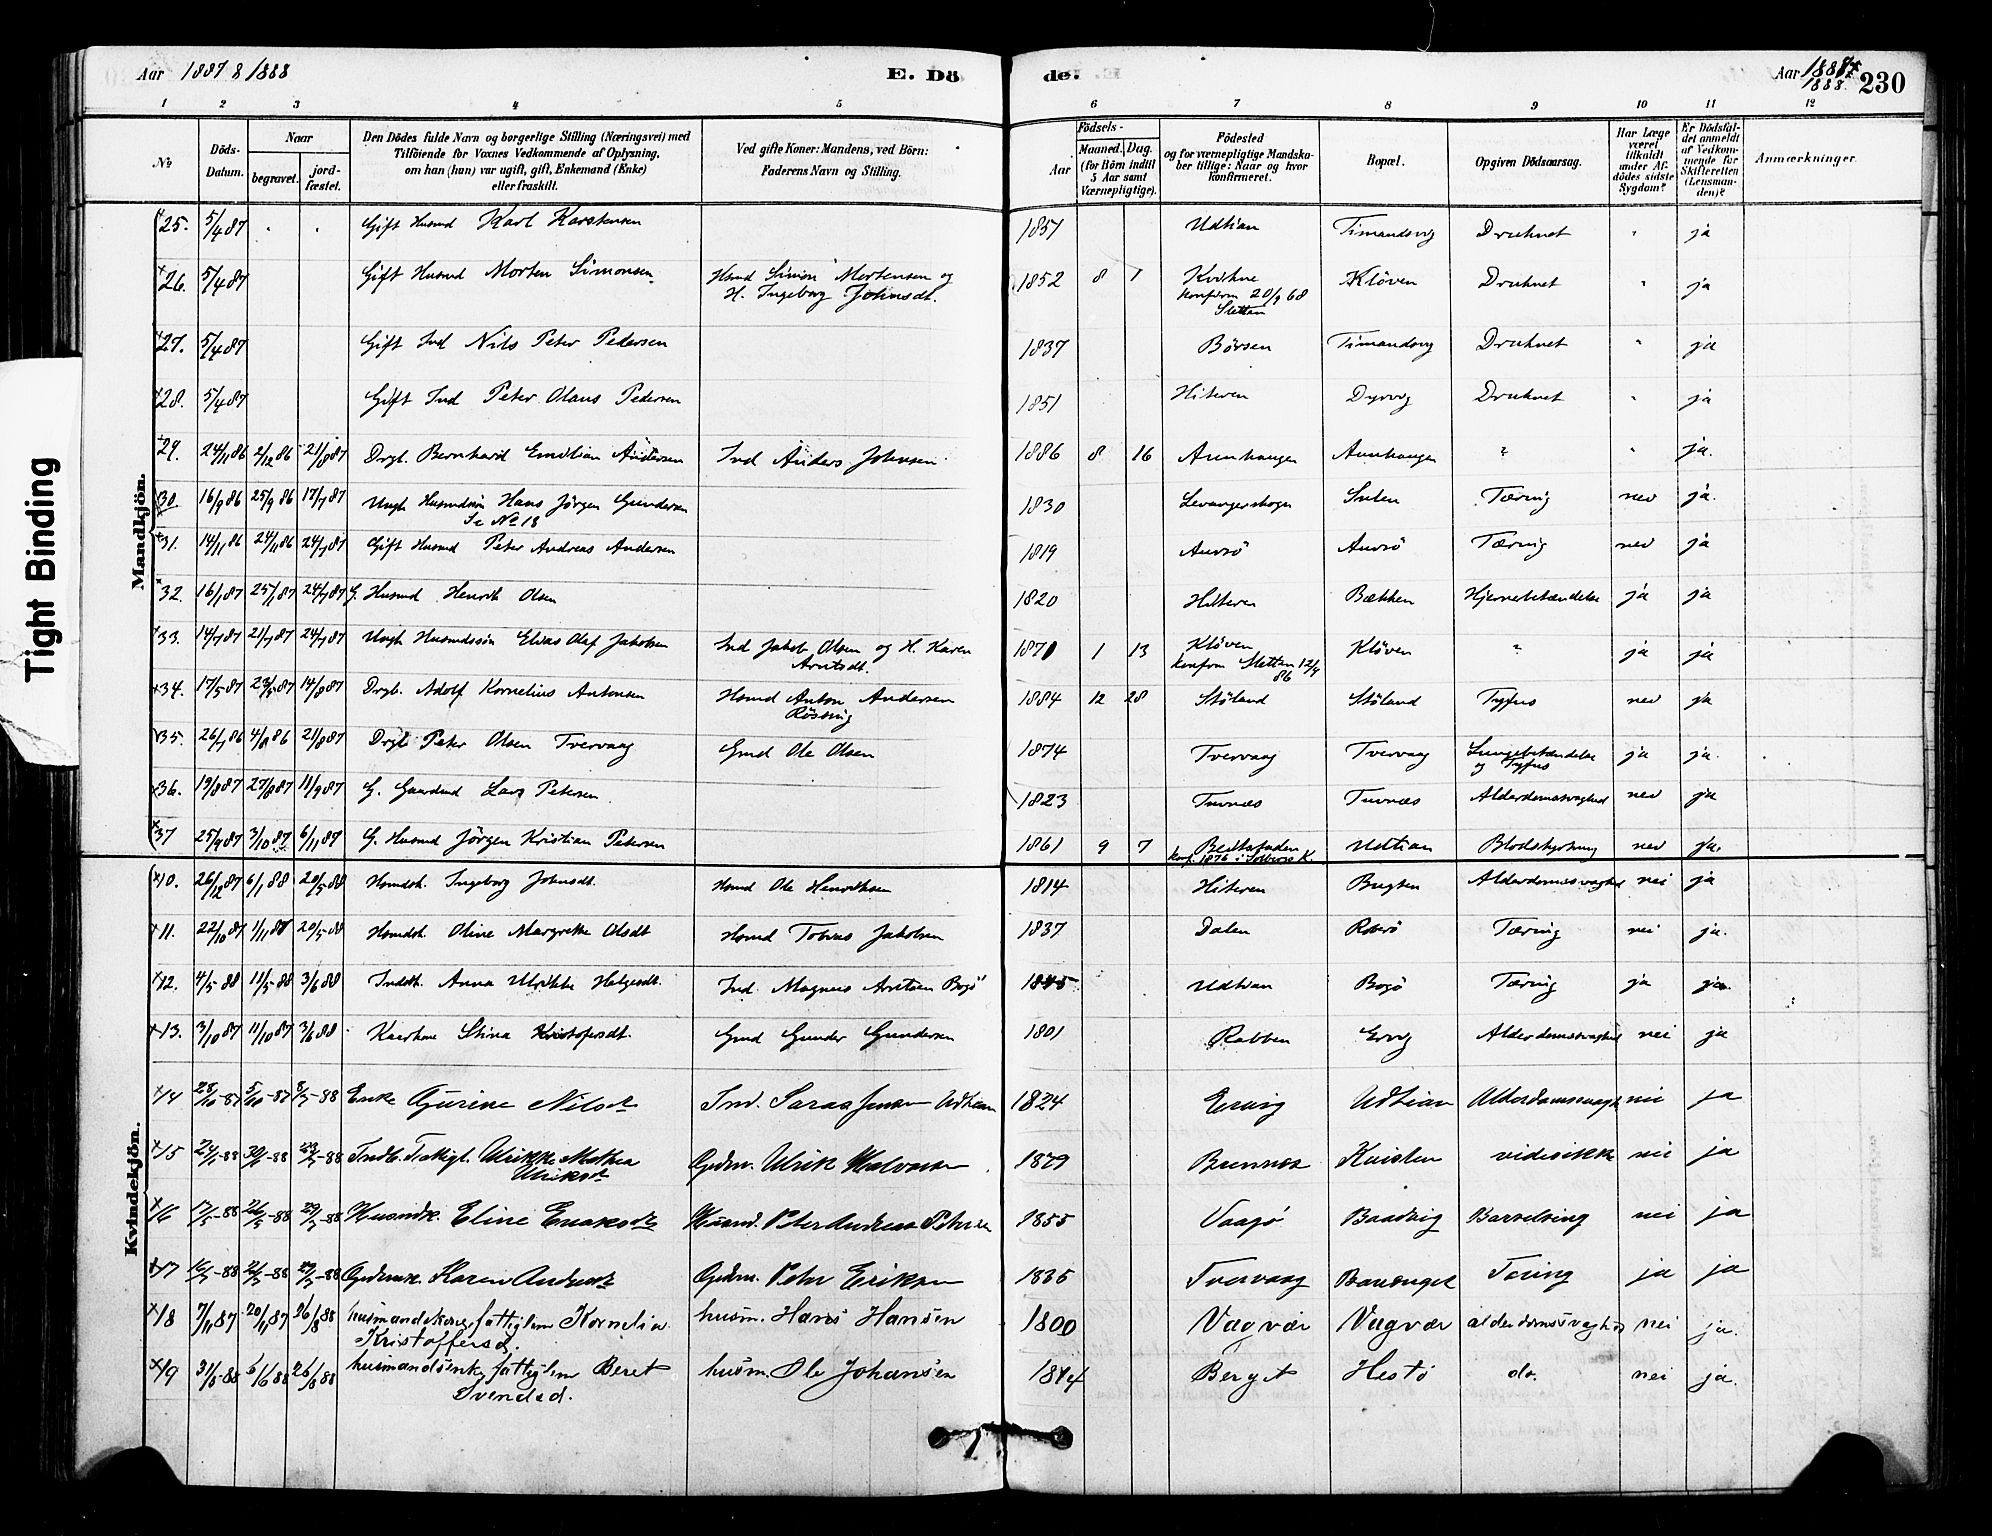 Tight Binding
Aar 1887 & 1888 E. Dö
de. Aar 1887 1888. 230
1 2 3 4 5 6 7 8 9 10 11 12
No
Döds-Datum.
Naar
begravet.
jordfæstet.
Den Dödes fulde Navn og borgerlige Stilling (Næringsvei) med
Tilföiende for Voxnes Vedkommende af Oplysning,
om han (hun) var ugift, gift, Enkemand (Enke)
eller fraskilt.
Ved gifte Koner: Mandens, ved Börn:
Faderens Navn og Stilling.
Födsels-
Aar
Maaned. Dag.
(for Börn indtil
5 Aar samt
Værnepligtige).
Födested
og for værnepligtige Mandskaber tillige: Naar og hvor
konfirmeret.
Bopæl.
Opgiven Dödsaarsag.
Har Læge
været
tilkaldt
under Afdödes sidste
Sygdom?
Er Dödsfaldet anmeldt
af Vedkommende for
Skifteretten
(Lensmanden)?
Anmærkninger.
Mandkjön.
25. 5/4 87 Gift Husmd Karl Karstensen 1857 Udtian Timandsvig Druknet " ja
26. 5/4 87 Gift Husmd Morten Simonsen Hsmd Simon Mortensen og 1852 8 1 Kvikne Klöven Druknet " ja
H. Ingeborg Johnsdt. konfirm 20/9 68
Sletten
27. 5/4 87 Gift Ind Nils Peter Pedersen 1837 Börsen Timandsvig Druknet " ja
28. 5/4 87 Gift Ind Peter Olaus Pedersen 1851 Hiteren Dyrvig Druknet " ja
29. 24/11 86 2/12 86 21/8 87 Drgb. Bernhard Emilian Andersen Ind Anders Johnsen 1886 8 16 Aunhaugen Aunhaugen " " ja.
30. 16/9 86 25/9 86 17/7 87 Ungk Husmdssön Hans Jörgen Gundersen 1830 Levangerskogn Sulen Tæring nei ja.
Se No 18
31. 14/11 86 24/11 86 24/7 87 Gift Husmd Peter Andreas Andersen 1819 Auvsö Auvsö Tæring nei ja
32. 16/1 87 25/1 87 24/7 87 G. Husmd Henrik Olsen 1820 Hitteren Bækken Hjernebetændelse ja ja
33. 14/7 87 21/7 87 24/7 87 Ungk Husmdssön Elias Olaf Jakobsen Ind Jakob Olsen og H. Karen 1871 1 13 Klöven Klöven " ja ja
Arntsdt. konfirm Sletten 12/9 86
34. 17/5 87 23/5 87 14/8 87 Drgb. Adolf Kornelius Antonsen Hsmd Anton Andersen 1884 12 28 Stöland Stöland Tyfus nei ja
Rössvig
35. 26/7 86 4/8 86 21/8 87 Drgb Peter Olsen Tvervaag Gmd Ole Olsen 1874 Tvervaag Tvervaag Lungebetændelse ja ja.
og Tyfus
36. 19/8 87 27/8 87 11/9 87 G. Gaardmd Lars Petersen 1823 Tuvnæs Tuvnæs Alderdomssvaghed nei ja
37 25/9 87 3/10 87 6/11 87 G. Husmd Jörgen Kristian Petersen 1861 9 7 Udtian Blodstyrtning nei ja.
konf. 1876
Kvindekjön.
10. 26/12 87 6/1 88 20/5 88 Hsmdsk. Ingeborg Johnsdt. Hsmd Ole Henriksen 1814 Hiteren Bugten Alderdomssvaghed nei ja
11. 22/10 87 1/11 87 20/5 88 Hsmdsk. Oline Margrethe Olsdt Hsmd Tobias Jakobsen 1837 Dalen Tæring nei ja.
12. 4/5 88 11/5 88 3/6 88 Indsk. Anna Ulrikke Helgesdt. Ind. Magnus Arntsen Bogö 1845 Udtian Bogö Tæring ja ja.
13. 3/10 87 11/10 87 3/6 88 Kaarkone Stina Kristofersdt. Gmd Gunder Gundersen 1801 Rabben Ervig Alderdomssvaghed nei ja
14 28/10-87 5/10-87 8/7-88 Enke Gurine Nilsdt Ind. Jensen Udtian 1824 Ervig Udtian Alderdomssvagh nei ja
15 24/6-88 30/6-88 22/7-88 Fattigl. Ulrikke Mathea Gdm. Ulrik Halvorsen 1879 Brennes videsikke nei ja
Ulriksdt
16 17/5-88 26/5-88 29/7-88 Husmdk. Eline Enoksdt Husmd. Peter Andreas Petersen 1855 Vaagö Baadvig Barselseng nei ja
17 -88 -88 29/7-88 Gdmk. Karen Andersdt Gdm. Peter Eriksen 1835 Tvervaag Tæring ja ja
18 7/11 87 20/11 87 26/8 88 husmandskone, fattiglem Kornelia husm. Hans Hansen 1800 Vagvær Vagvær alderdomssvaghed nei ja.
Kristoffersd.
19 31/5-88 6/6 88 26/8 88 husmandsenke, fattiglem Beret husm. Ole Johansen 1814 Berget Hestö do. nei ja.
Svendsd.